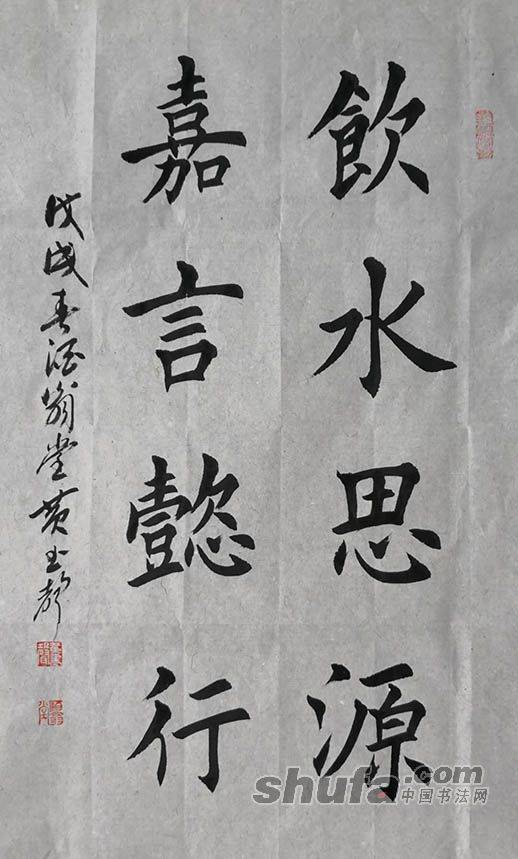 飲水思源
嘉言懿行
戊戌春酒翁堂黄玉声
shufa.com
中国书法网